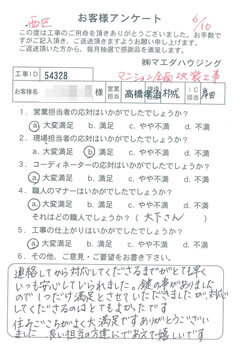 西区
お客様アンケート
6/10
この度は工事のご用命を頂きありがとうございました。お手数で
すがご記入頂き、ご返送頂きますようお願い申し上げます。
ご返送頂いた方から、毎月抽選で感謝品を進呈します。
㈱マエダハウジング
工事ID 54328
マンション全面改装工事
お名前 様 営業担当 高橋 IC担当
1. 営業担当者の応対はいかがでしたでしょうか?
ⓐ大変満足 b. 満足 c. やや不満 d. 不満
2. 現場担当者の応対はいかがでしたでしょうか?
a. 大変満足 ⓑ満足 c. やや不満 d. 不満
3. コーディネーターの応対はいかがでしたでしょうか?
ⓐ大変満足 b. 満足 c. やや不満 d. 不満
4. 職人のマナーはいかがでしたでしょうか?
ⓐ大変満足 b. 満足 c. やや不満 d. 不満
それはどの職人でしょうか?(大下さん)
5. 工事の仕上がりはいかがでしたでしょうか?
ⓐ大変満足 b. 満足 c. やや不満 d. 不満
6. その他、ご意見・ご要望をお書き下さい。
連絡してから対応してくださるまでがとても早く
いつも安心していられました。鍵の事がありました
ので1つだけ満足とさせていただきましたが、対応
してくださるのはとてもよかったです
住みごこちがよく大満足です ありがとうござい
ました 良い担当の方達にであえて嬉しいです